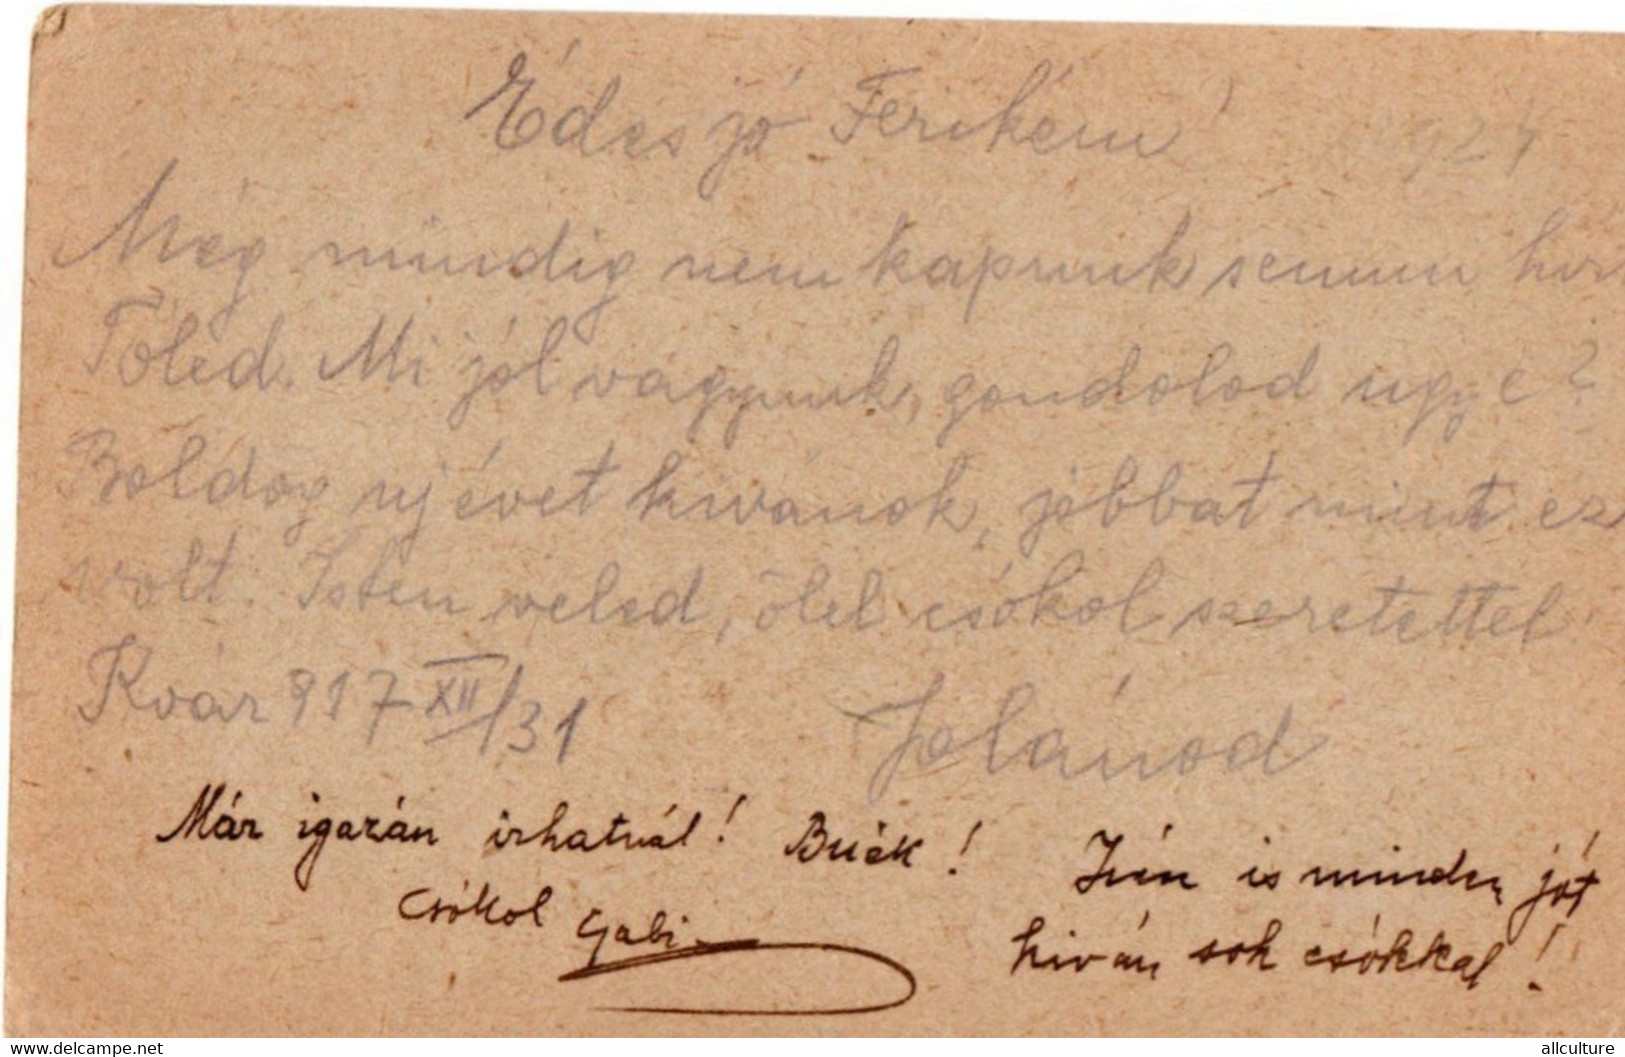 Édes jó Ferikém!
924
Még mindig nem kapunk semmi hír
Tőled. Mi jól vagyunk, gondolod ugy e?
Boldog uj évet kivánok, jobbat mint ez
volt. Isten veled, ölel csókol szeretettel
Kvár 917 XII/31 Jolánod
Már igazán irhatnál! Buék!
csókol Gabi
Irén is minden jót
kiván sok csókkal!
www.delcampe.net
allculture